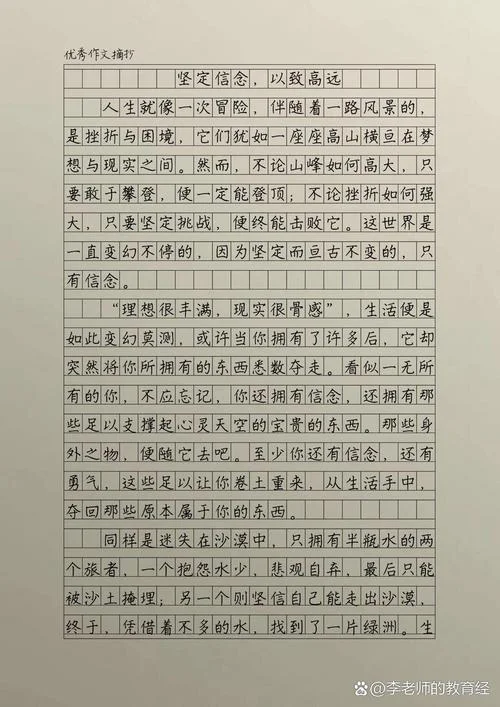 优秀作文摘抄
坚定信念，以致高远
人生就像一次冒险，伴随着一路风景的，
是挫折与困境，它们犹如一座座高山横亘在梦
想与现实之间。然而，不论山峰如何高大，只
要敢于攀登，便一定能登顶；不论挫折如何强
大，只要坚定挑战，便终能击败它。这世界是
一直变幻不停的，因为坚定而亘古不变的，只
有信念。
“理想很丰满，现实很骨感”，生活便是
如此变幻莫测，或许当你拥有了许多后，它却
突然将你所拥有的东西悉数夺走。看似一无所
有的你，不应忘记，你还拥有信念，还拥有那
些足以支撑起心灵天空的宝贵的东西。那些身
外之物，便随它去吧。至少你还有信念，还有
勇气，这些足以让你卷土重来，从生活手中，
夺回那些原本属于你的东西。
同样是迷失在沙漠中，只拥有半瓶水的两
个旅者，一个抱怨水少，悲观自弃，最后只能
被沙土掩埋；另一个则坚信自己能走出沙漠，
终于，凭借着不多的水，找到了一片绿洲。生
@李老师的教育经